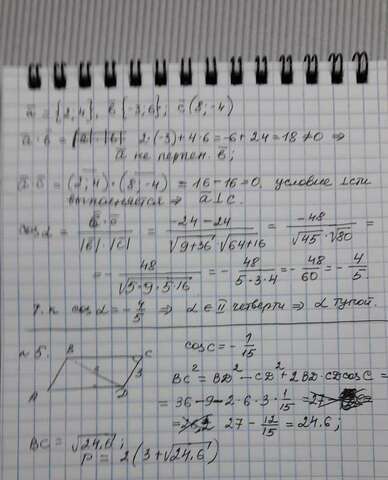 ā = {2,4}, b̄ {-3,6}; c̄ (8,-4)
ā · b̄ = 2·(-3)+4·6 = -6+24 = 18 ≠ 0 ⇒
ā не перпен. b̄;
ā · c̄ = (2;4)·(8;-4) = 16-16=0, условие ⊥сти
выполняется ⇒ ā ⊥ c.
cos α = b̄·c̄ / |b̄|·|c̄| = -24-24 / √9+36·√64+16 = -48 / √45·√80 =
= - 48 / √5·9·5·16 = - 48 / 5·3·4 = - 48/60 = - 4/5
т.к cos α = - 4/5 ⇒ α ∈ II четверти ⇒ α тупой.
№5.
B
C
3
A
D
cos C = - 1/15
BC² = BD² - CD² + 2BD·CD cos C =
= 36 - 9 - 2·6·3·1/15 =
= 27 - 12/15 = 24.6;
BC = √24,6;
P = 2(3+√24,6)